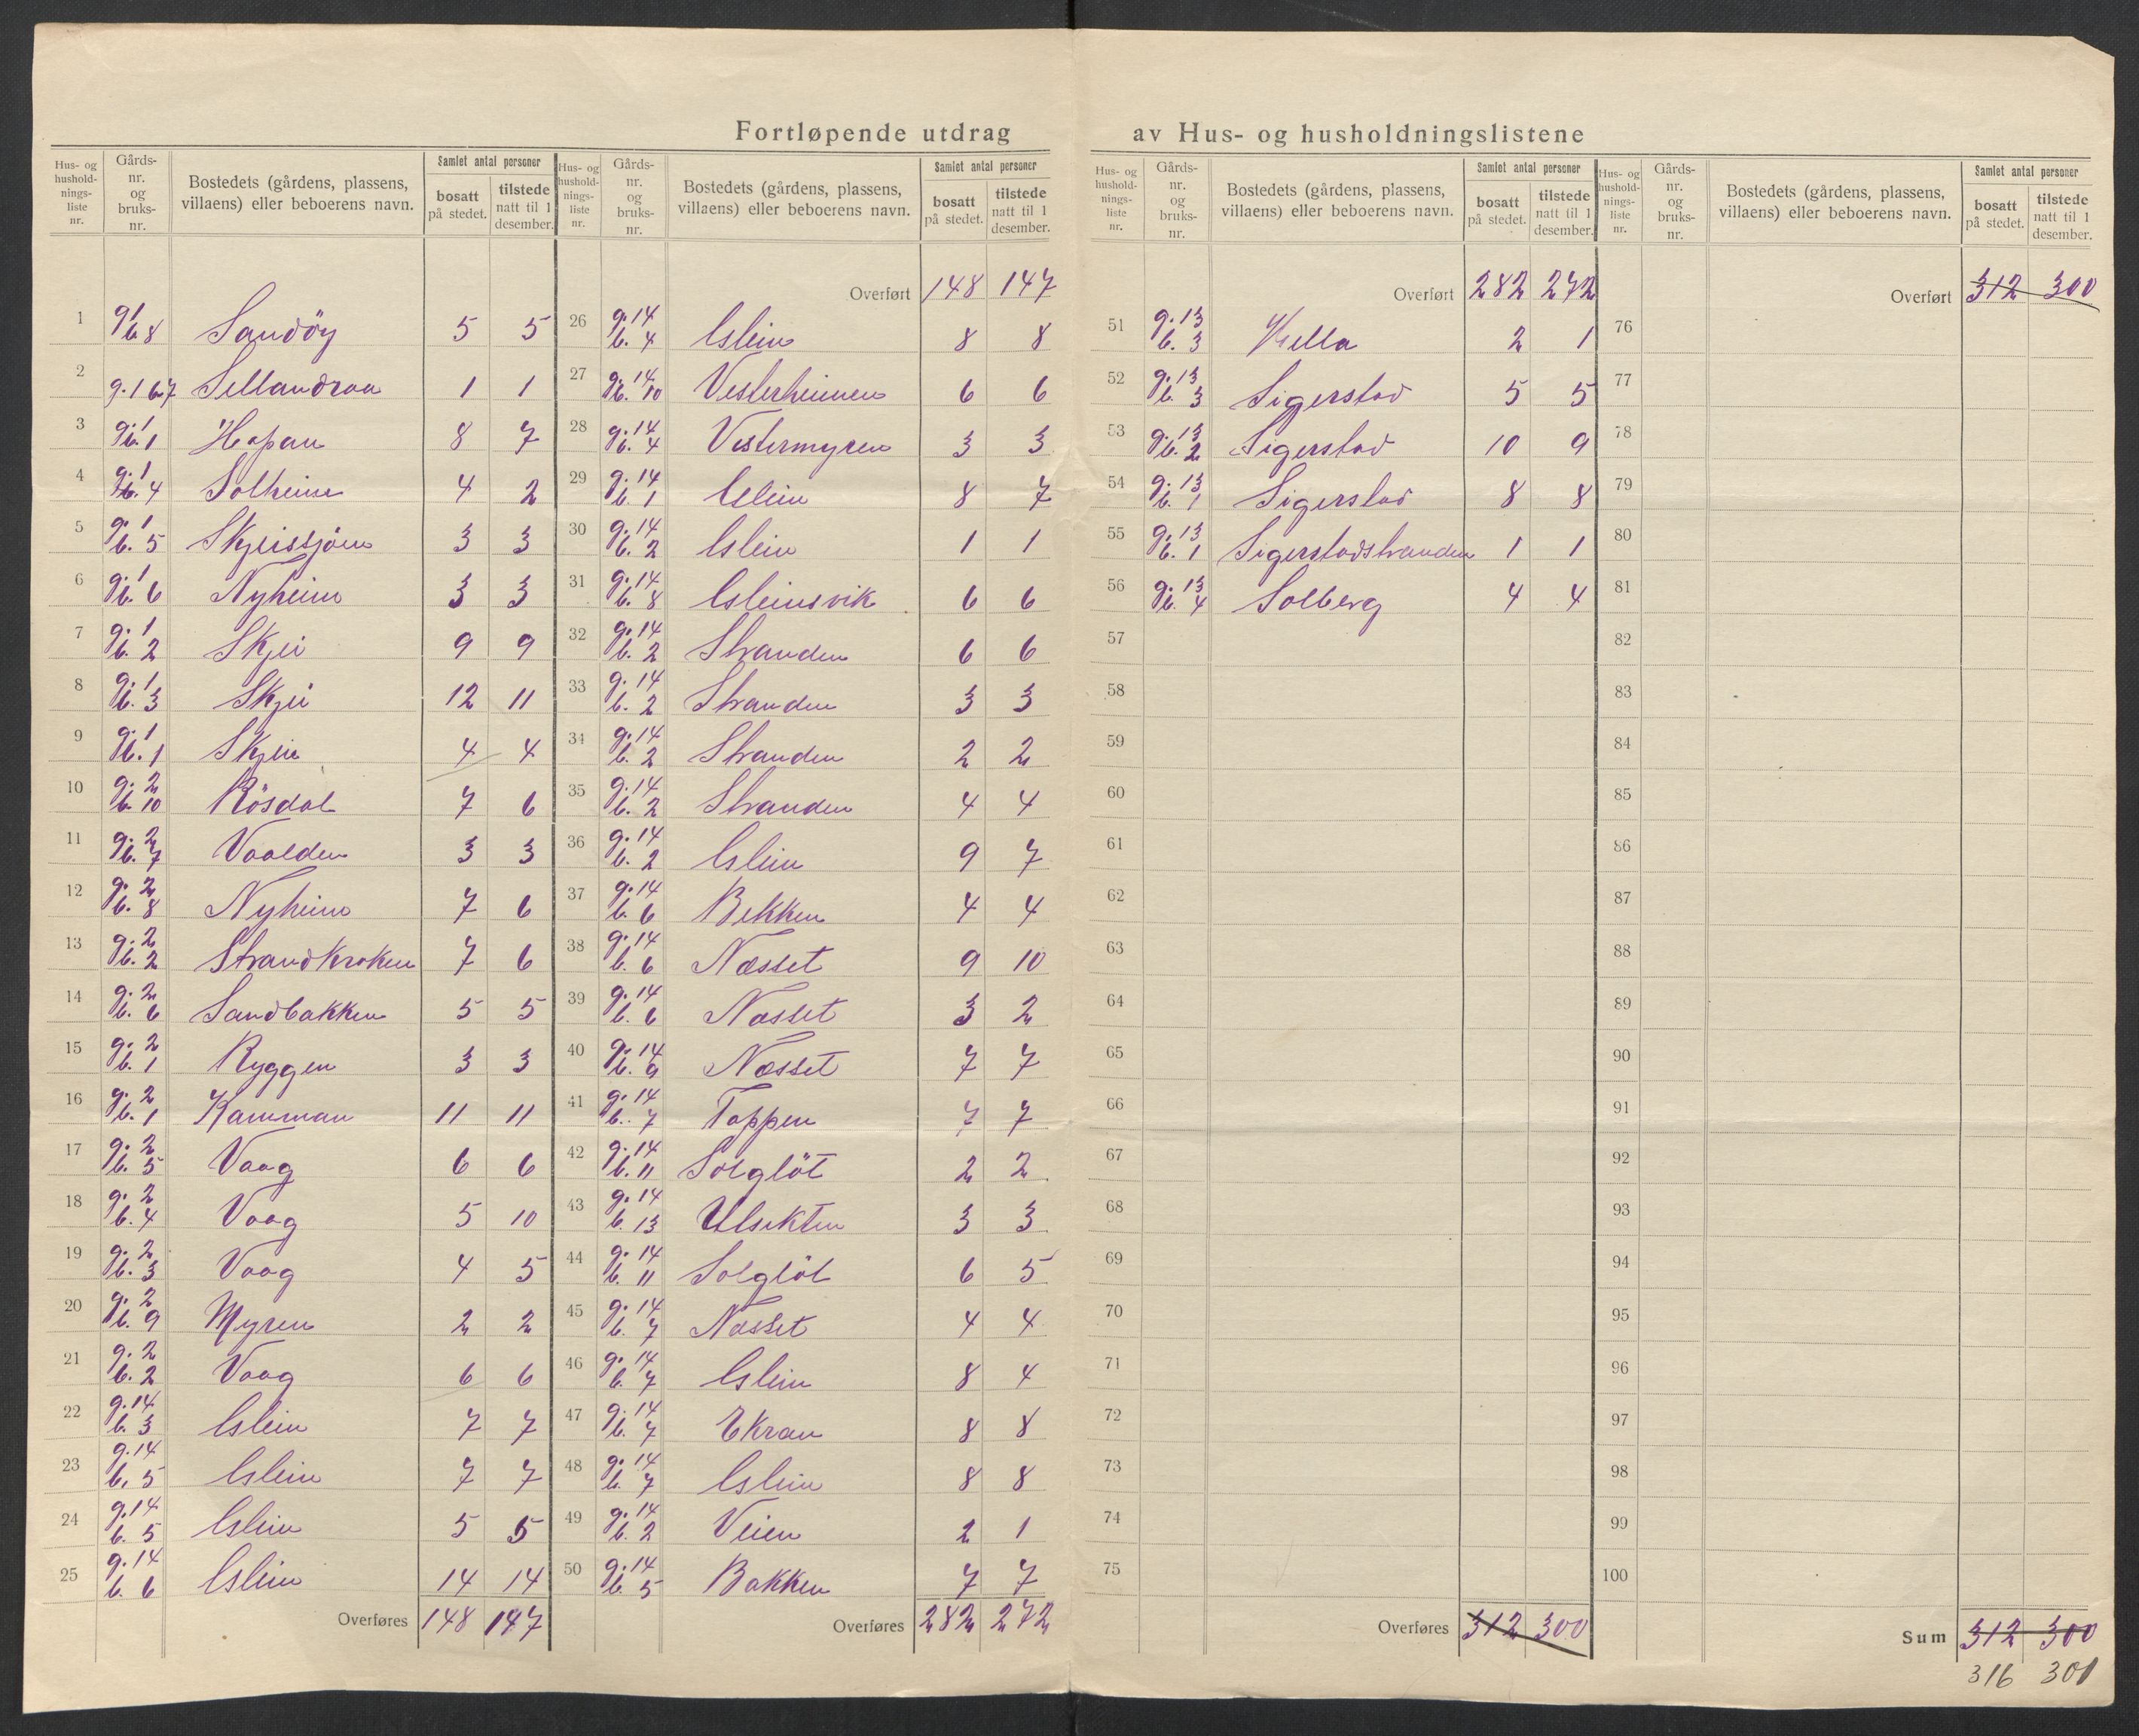 Fortløpende utdrag av Hus- og husholdningslistene
Hus- og husholdnings-liste nr. Gårds-nr. og bruks-nr. Bostedets (gårdens, plassens, villaens) eller beboerens navn. Samlet antal personer bosatt på stedet. tilstede natt til 1 desember.
1 g. 1 b. 8 Sandöy 5 5
2 g. 1 b. 7 Sellandraa 1 1
3 g. 1 b. 1 Hapan 8 7
4 g. 1 b. 4 Solheim 4 2
5 g. 1 b. 5 Skjeissjöen 3 3
6 g. 1 b. 6 Nyheim 3 3
7 g. 1 b. 2 Skjei 9 9
8 g. 1 b. 3 Skjei 12 11
9 g. 1 b. 1 Skjei 4 4
10 g. 2 b. 10 Rösdal 7 6
11 g. 2 b. 7 Vaalden 3 3
12 g. 2 b. 8 Nyheim 7 6
13 g. 2 b. 2 Strandkroken 7 6
14 g. 2 b. 6 Sandbakken 5 5
15 g. 2 b. 1 Ryggen 3 3
16 g. 2 b. 1 Kamman 11 11
17 g. 2 b. 5 Vaag 6 6
18 g. 2 b. 4 Vaag 5 10
19 g. 2 b. 3 Vaag 4 5
20 g. 2 b. 9 Myren 2 2
21 g. 2 b. 2 Vaag 6 6
22 g. 14 b. 3 Eslein 7 7
23 g. 14 b. 5 Eslein 7 7
24 g. 14 b. 5 Eslein 5 5
25 g. 14 b. 6 Eslein 14 14
Overføres 148 147
Hus- og husholdnings-liste nr. Gårds-nr. og bruks-nr. Bostedets (gårdens, plassens, villaens) eller beboerens navn. Samlet antal personer bosatt på stedet. tilstede natt til 1 desember.
Overført 148 147
26 g. 14 b. 4 Eslein 8 8
27 g. 14 b. 10 Vesterheimen 6 6
28 g. 14 b. 4 Vestermyren 3 3
29 g. 14 b. 1 Eslein 8 7
30 g. 14 b. 2 Eslein 1 1
31 g. 14 b. 8 Esleinsvik 6 6
32 g. 14 b. 2 Stranden 6 6
33 g. 14 b. 2 Stranden 3 3
34 g. 14 b. 2 Stranden 2 2
35 g. 14 b. 2 Stranden 4 4
36 g. 14 b. 2 Eslein 9 7
37 g. 14 b. 6 Bekken 4 4
38 g. 14 b. 6 Næsset 9 10
39 g. 14 b. 6 Næsset 3 2
40 g. 14 b. 9 Næsset 7 7
41 g. 14 b. 7 Toppen 7 7
42 g. 14 b. 11 Solglöt 2 2
43 g. 14 b. 13 Utsikten 3 3
44 g. 14 b. 11 Solglöt 6 5
45 g. 14 b. 7 Næsset 4 4
46 g. 14 b. 7 Eslein 8 4
47 g. 14 b. 7 Ekran 8 8
48 g. 14 b. 7 Eslein 8 8
49 g. 14 b. 2 Veien 2 1
50 g. 14 b. 5 Bakken 7 7
Overføres 282 272
Hus- og husholdnings-liste nr. Gårds-nr. og bruks-nr. Bostedets (gårdens, plassens, villaens) eller beboerens navn. Samlet antal personer bosatt på stedet. tilstede natt til 1 desember.
Overført 282 272
51 g. 13 b. 3 Kella 2 1
52 g. 13 b. 3 Sigerstad 5 5
53 g. 13 b. 2 Sigerstad 10 9
54 g. 13 b. 1 Sigerstad 8 8
55 g. 13 b. 1 Sigerstadstranden 1 1
56 g. 13 b. 4 Solberg 4 4
57
58
59
60
61
62
63
64
65
66
67
68
69
70
71
72
73
74
75
Overføres 312 300
Hus- og husholdnings-liste nr. Gårds-nr. og bruks-nr. Bostedets (gårdens, plassens, villaens) eller beboerens navn. Samlet antal personer bosatt på stedet. tilstede natt til 1 desember.
Overført 312 300
76
77
78
79
80
81
82
83
84
85
86
87
88
89
90
91
92
93
94
95
96
97
98
99
100
Sum 312 300
316 301